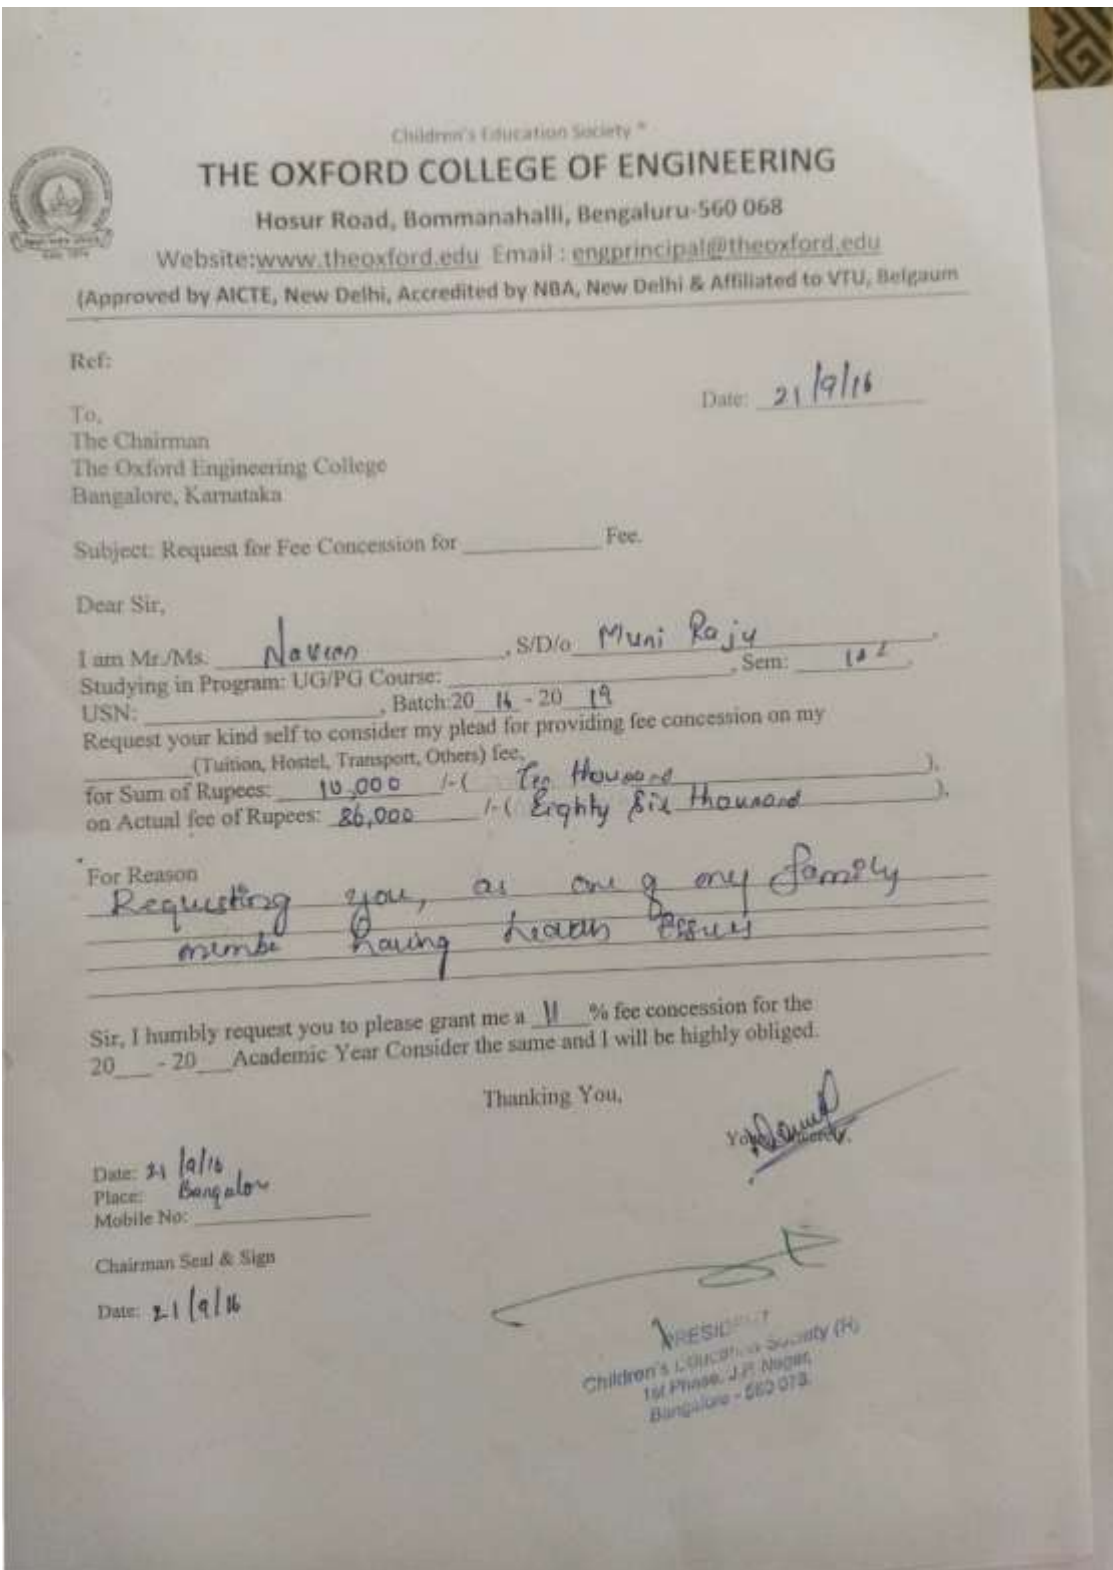 Children's Education Society ®
THE OXFORD COLLEGE OF ENGINEERING
Hosur Road, Bommanahalli, Bengaluru-560 068
Website:www.theoxford.edu Email : engprincipal@theoxford.edu
(Approved by AICTE, New Delhi, Accredited by NBA, New Delhi & Affiliated to VTU, Belgaum
Ref:
Date: 21/9/16
To,
The Chairman
The Oxford Engineering College
Bangalore, Karnataka
Subject: Request for Fee Concession for ____________ Fee.
Dear Sir,
I am Mr./Ms. Naveen, S/D/o Muni Raju,
Studying in Program: UG/PG Course: ____________, Sem:
USN: ____________, Batch:2016 - 2019
Request your kind self to consider my plead for providing fee concession on my
________ (Tuition, Hostel, Transport, Others) fee,
for Sum of Rupees: 10,000 /-( Ten thousand ),
on Actual fee of Rupees: 86,000 /-( Eighty Six thousand ),
For Reason
Requesting you, as one of my family
membe having health issues
Sir, I humbly request you to please grant me a 11 % fee concession for the
20___ - 20___Academic Year Consider the same and I will be highly obliged.
Thanking You,
Date: 21/9/16
Place: Bangalore
Mobile No: ____________
Chairman Seal & Sign
Date: 21/9/16
PRESIDENT
Children's Education Society (R)
1st Phase, J.P. Nagar,
Bangalore - 560 078.